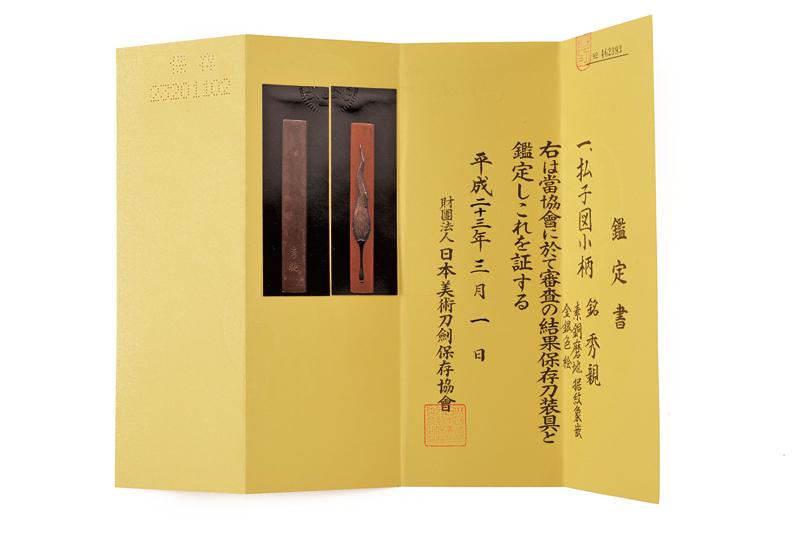 № 462393
鑑定書
一、払子図小柄 銘 秀親
素銅磨地 据紋象嵌
金銀色絵
右は當協會に於て審査の結果保存刀装具と
鑑定しこれを証する
平成二十三年三月一日
財團法人 日本美術刀劍保存協會
23201102